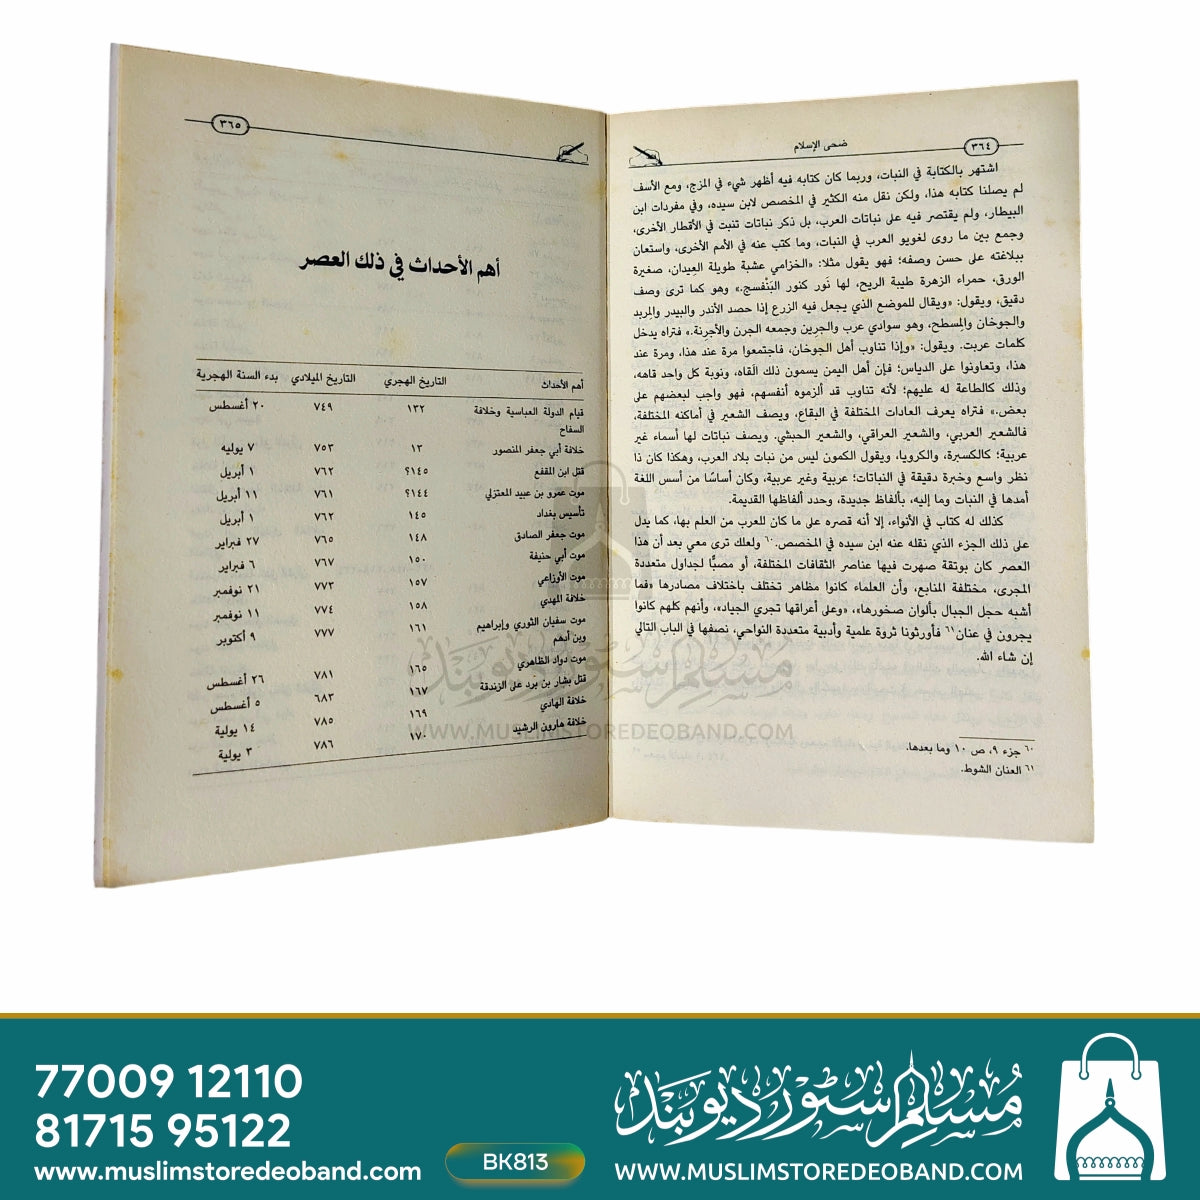 ٣٦٤
ضحى الإسلام
اشتهر بالكتابة في النبات، وربما كان كتابه فيه أظهر شيء في المزج، ومع الأسف
لم يصلنا كتابه هذا، ولكن نقل منه الكثير في المخصص لابن سيده، وفي مفردات ابن
البيطار، ولم يقتصر فيه على نباتات العرب، بل ذكر نباتات تنبت في الأقطار الأخرى،
وجمع بين ما روى لغويو العرب في النبات، وما كتب عنه في الأمم الأخرى، واستعان
ببلاغته على حسن وصفه؛ فهو يقول مثلا: «الخزامي عشبة طويلة العيدان، صغيرة
الورق، حمراء الزهرة طيبة الريح، لها نَور كنور البَنْفسج.» وهو كما ترى وصف
دقيق، ويقول: «ويقال للموضع الذي يجعل فيه الزرع إذا حصد الأندر والبيدر والمربد
والجوخان والمِسطح، وهو سوادي عرب والجرين وجمعه الجرن والأجرنة.» فتراه يدخل
كلمات عربت. ويقول: «وإذا تناوب أهل الجوخان، فاجتمعوا مرة عند هذا، ومرة عند
هذا، وتعاونوا على الدياس؛ فإن أهل اليمن يسمون ذلك القاه، ونوبة كل واحد قاهه،
وذلك كالطاعة له عليهم؛ لأنه تناوب قد ألزموه أنفسهم، فهو واجب لبعضهم على
بعض.» فتراه يعرف العادات المختلفة في البقاع، ويصف الشعير في أماكنه المختلفة،
فالشعير العربي، والشعير العراقي، والشعير الحبشي. ويصف نباتات لها أسماء غير
عربية؛ كالكسبرة، والكرويا، ويقول الكمون ليس من نبات بلاد العرب، وهكذا كان ذا
نظر واسع وخبرة دقيقة في النباتات؛ عربية وغير عربية، وكان أساسًا من أسس اللغة
أمدها في النبات وما إليه، بألفاظ جديدة، وحدد ألفاظها القديمة.
كذلك له كتاب في الأنواء، إلا أنه قصره على ما كان للعرب من العلم بها، كما يدل
على ذلك الجزء الذي نقله عنه ابن سيده في المخصص.٦٠ ولعلك ترى معي بعد أن هذا
العصر كان بوتقة صهرت فيها عناصر الثقافات المختلفة، أو مصبًّا لجداول متعددة
المجرى، مختلفة المنابع، وأن العلماء كانوا مظاهر تختلف باختلاف مصادرها «فما
أشبه حجل الجبال بألوان صخورها»، «وعلى أعراقها تجري الجياد»، وأنهم كلهم كانوا
يجرون في عنان٦١ فأورثونا ثروة علمية وأدبية متعددة النواحي، نصفها في الباب التالي
إن شاء الله.
٦٠ جزء ٩، ص ١٠ وما بعدها.
٦١ العنان الشوط.
٣٦٥
أهم الأحداث في ذلك العصر
أهم الأحداث التاريخ الهجري التاريخ الميلادي بدء السنة الهجرية
قيام الدولة العباسية وخلافة ١٣٢ ٧٤٩ ٢٠ أغسطس
السفاح
خلافة أبي جعفر المنصور ١٣ ٧٥٣ ٧ يوليه
قتل ابن المقفع ١٤٥؟ ٧٦٢ ١ أبريل
موت عمرو بن عبيد المعتزلي ١٤٤؟ ٧٦١ ١١ أبريل
تأسيس بغداد ١٤٥ ٧٦٢ ١ أبريل
موت جعفر الصادق ١٤٨ ٧٦٥ ٢٧ فبراير
موت أبي حنيفة ١٥٠ ٧٦٧ ٦ فبراير
موت الأوزاعي ١٥٧ ٧٧٣ ٢١ نوفمبر
خلافة المهدي ١٥٨ ٧٧٤ ١١ نوفمبر
موت سفيان الثوري وإبراهيم ١٦١ ٧٧٧ ٩ أكتوبر
وبن أدهم
موت دواد الظاهري ١٦٥ ٧٨١ ٢٦ أغسطس
قتل بشار بن برد على الزندقة ١٦٧ ٦٨٣ ٥ أغسطس
خلافة الهادي ١٦٩ ٧٨٥ ١٤ يولية
خلافة هارون الرشيد ١٧٠ ٧٨٦ ٣ يولية
مسلم سٹور دیوبند
WWW.MUSLIMSTOREDEOBAND.COM
77009 12110
81715 95122
www.muslimstoredeoband.com
BK813
مسلم سٹور دیوبند
WWW.MUSLIMSTOREDEOBAND.COM